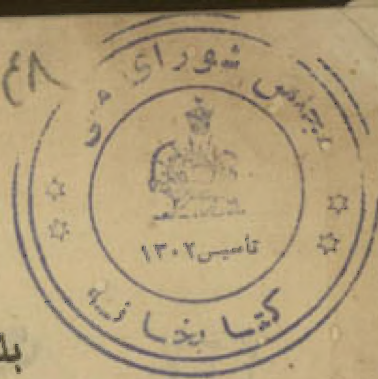 ۴۸
مجلس شورای ملی
تأسیس ۱۳۰۲
کتابخانه